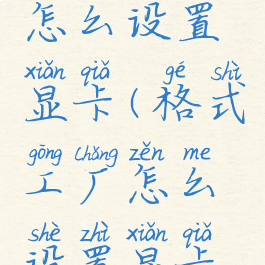 怎么设置
xiǎn qiǎ gé shì
显卡(格式
gōng chǎng zěn me
工厂怎么
shè zhì xiǎn qiǎ
设置显卡